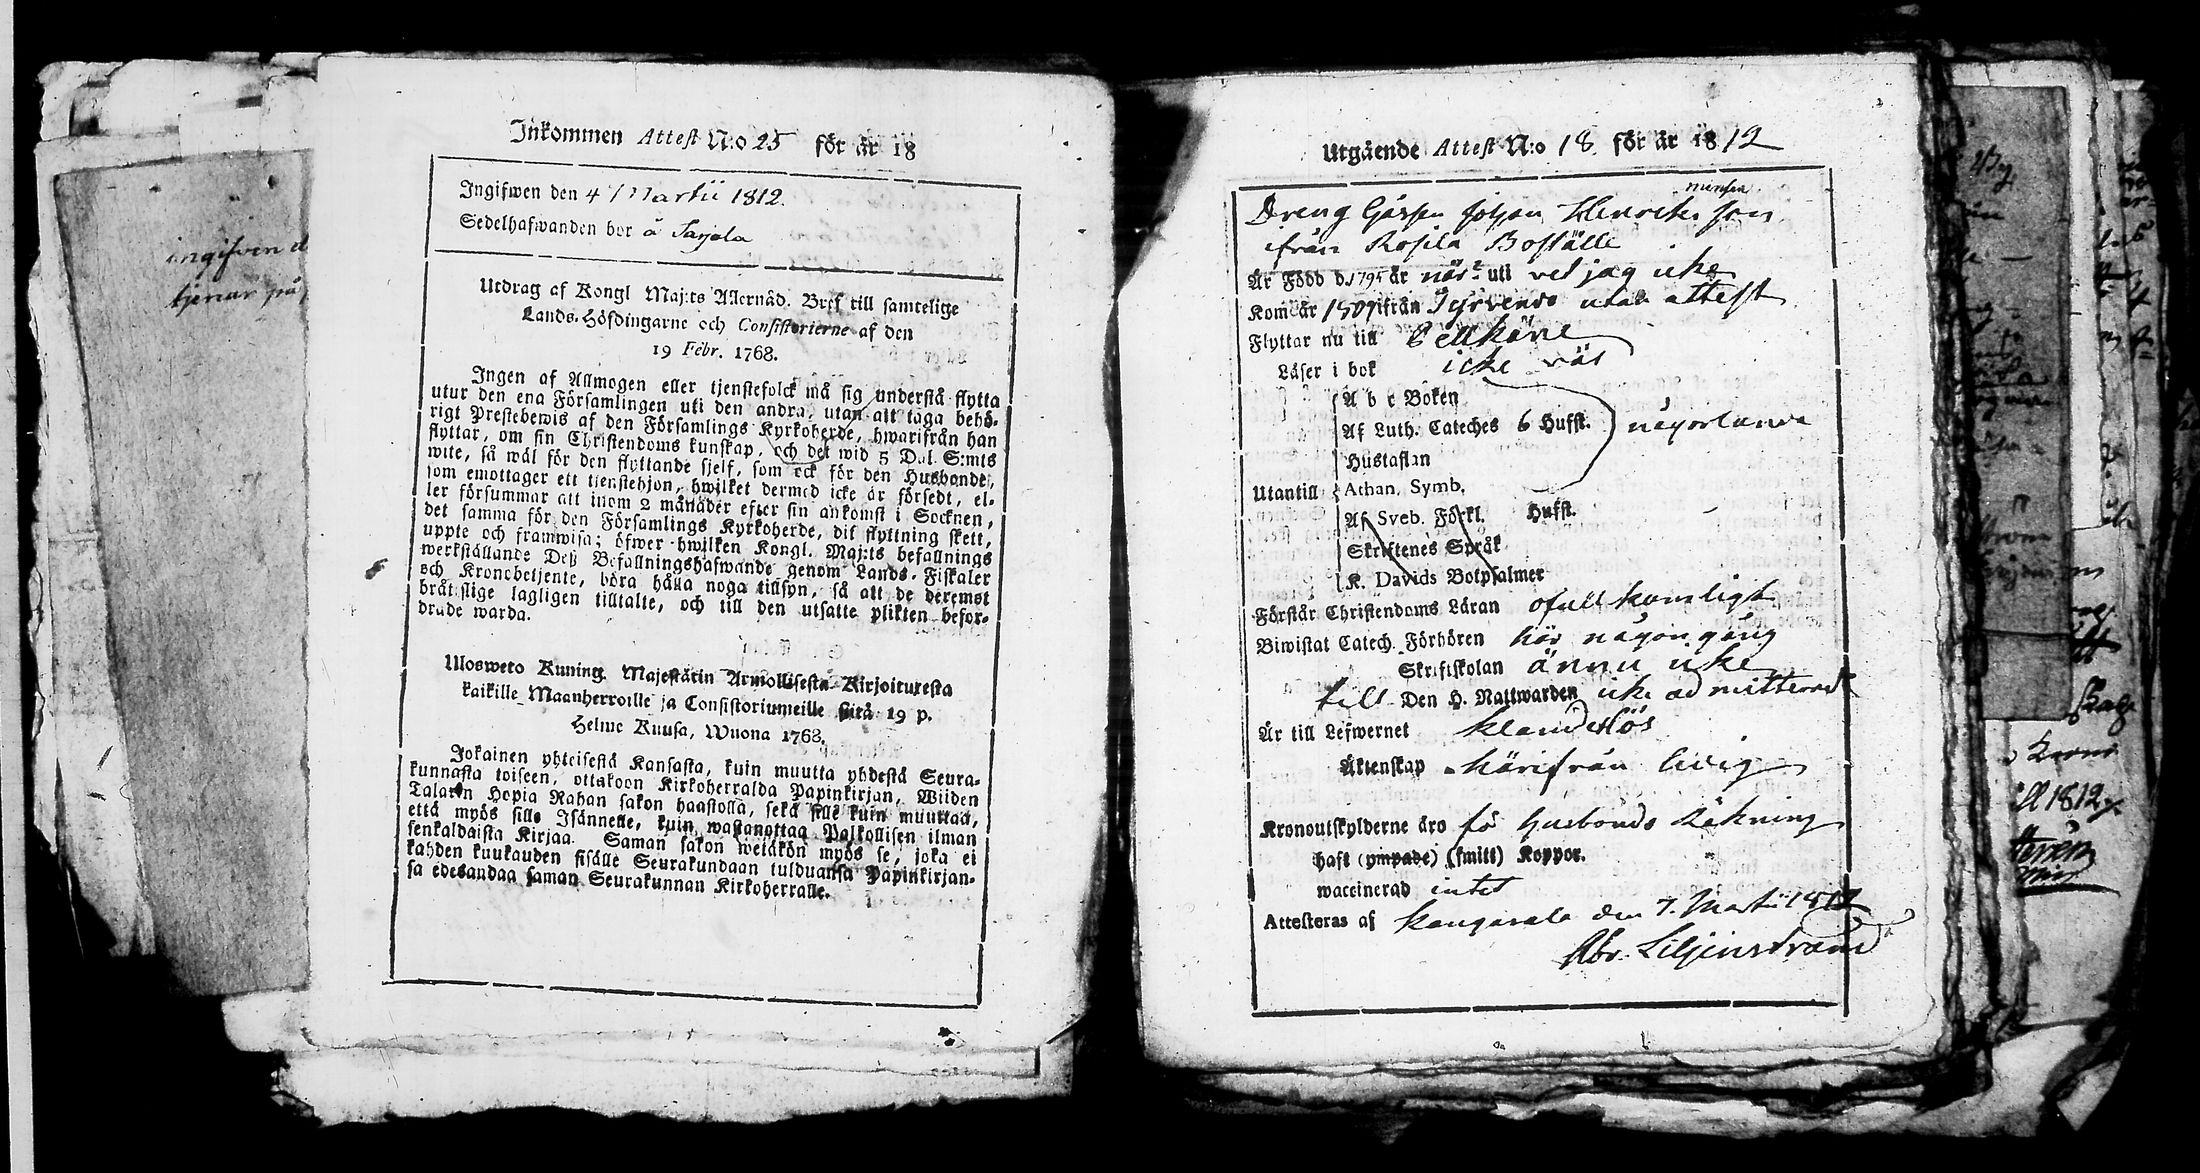 ingifven d
tjenar på
Inkommen Attest N:o 25 för år 18
Ingifwen den 4 Martii 1812.
Sedelhafwanden bor å Sarjola
Utdrag af Kongl Maj:ts Allernåd. Bref till samtelige
Lands-Höfdingarne och Consistorierne af den
19 Febr. 1768.
Ingen af Allmogen eller tjenstefolck må sig understå flytta
utur den ena Församlingen uti den andra, utan att taga behö-
rigt Prestebewis af den Församlings Kyrkoherde, hwarifrån han
flyttar, om sin Christendoms kunskap, och det wid 5 Dal. S:mts
wite, så wäl för den flyttande sjelf, som ock för den Husbonde,
som emottager ett tjenstehjon, hwilket dermed icke är försedt, el-
ler försummar att inom 2 månader efter sin ankomst i Socknen,
det samma för den Församlings Kyrkoherde, dit flyttning skett,
uppte och framwisa; öfwer hwilken Kongl. Maj:ts befallnings
werkställande Deß Befallningshafwande genom Lands-Fiskaler
och Kronobetjente, böra hålla noga tillsyn, så att de deremot
bråtslige lagligen tilltalte, och till den utsatte plikten befor-
drade warda.
Ulosweto Kuning. Majestätin Armollisesta Kirjoituxesta
kaikille Maanherroille ja Consistoriumeille siitä 19 p.
Helme Kuusa, Wuona 1768.
Jokainen yhteisestä Kansasta, kuin muutta yhdestä Seura-
kunnasta toiseen, ottakoon Kirkoherralda Papinkirjan, Wiiden
Talarin Hopia Rahan sakon haastolla, sekä sille kuin muuttaa,
että myös sille Isännelle, kuin wastanottaa Palkollisen ilman
senkaldaista Kirjaa. Saman sakon wetäkön myös se, joka ei
kahden kuukauden sisälle Seurakundaan tulduansa Papinkirjan-
sa edesandaa saman Seurakunnan Kirkoherralle.
Utgående Attest N:o 18. för år 1812
Dreng Gåssen Johan Henriks son
ifrån Rosila Boställe
Är Född d. 1795 år när uti vet jag icke
Kom år 1809 ifrån Tyrvendo utan attest
Flyttar nu till Pelkäne
Läser i bok icke räs
A b c Boken
Af Luth. Cateches 6 Hufst. någorlunda
Hustaflan
Utantill Athan. Symb.
Af Sveb. Förkl. Hufst.
Skriftenes Språk
K. Davids Botpsalmer
Förstår Christendoms Läran ofullkomligt
Biwistat Catech. Förhören här någon gång
Skriftskolan ännu icke
till Den H. Nattwarden icke admitterad
Är till Lefwernet klanderlös
Äktenskap härifrån ledig
Kronoutskylderne äro på husbonds Räkning
haft (ympade) (smitt) Koppor.
waccinerad intet
Attesteras af Kangasala den 7. Martii 1812
Abr. Liljenstrand